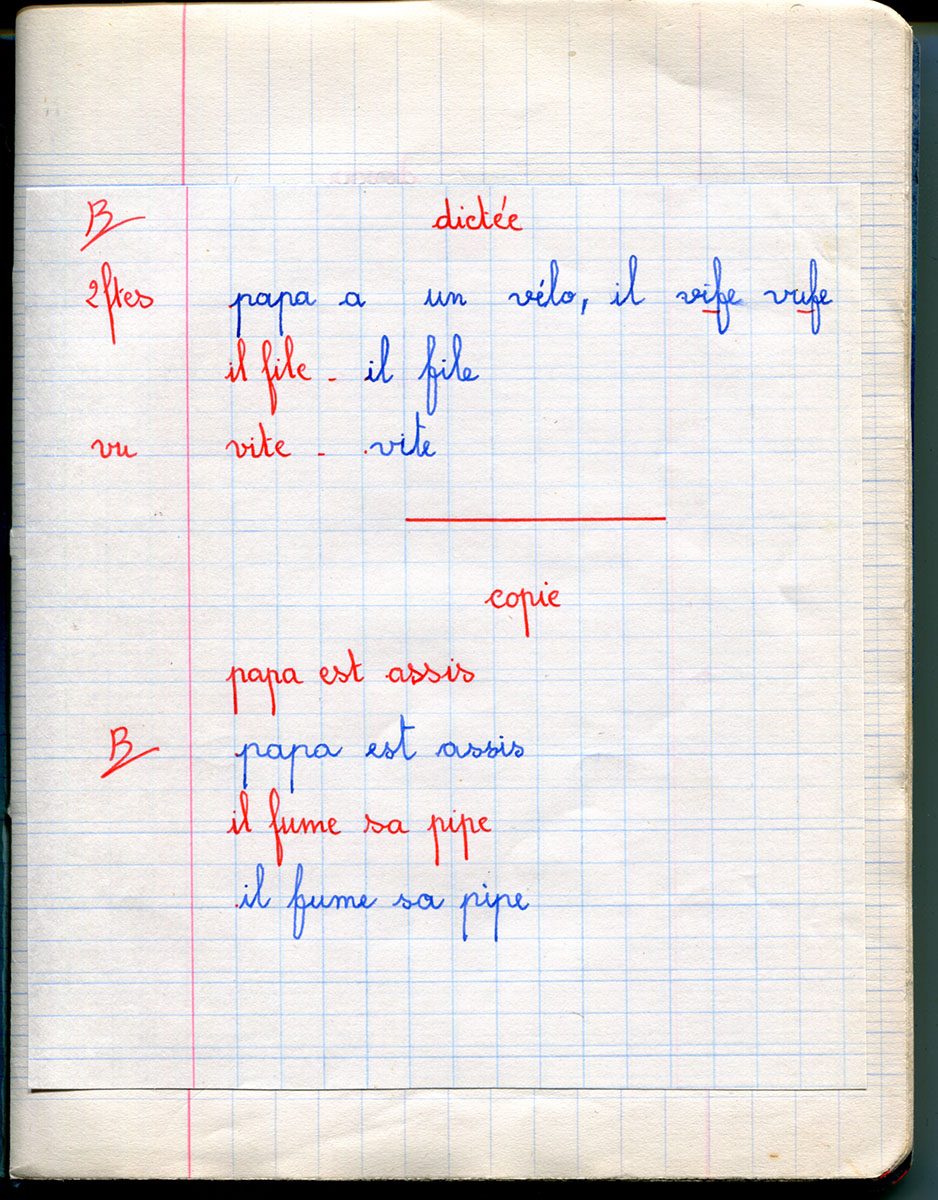 B dictée
2ftes papa a un vélo, il vife vufe
il file - il file
vu vite - vite
copie
papa est assis
B papa est assis
il fume sa pipe
il fume sa pipe